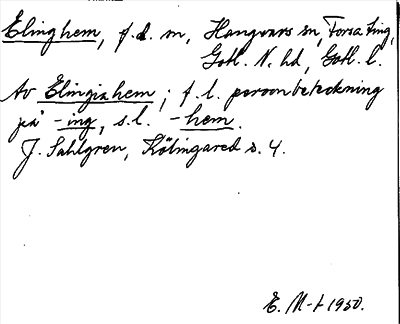 Elinghem, f.d. sn, Hangvars sn, Forsa ting,
Gotl. N. hd, Gotl. l.
Av Elingiahem; f. l. personbeteckning
på -ing, s.l. -hem.
J. Sahlgren, Kölingared s. 4.
E. M-t 1950.